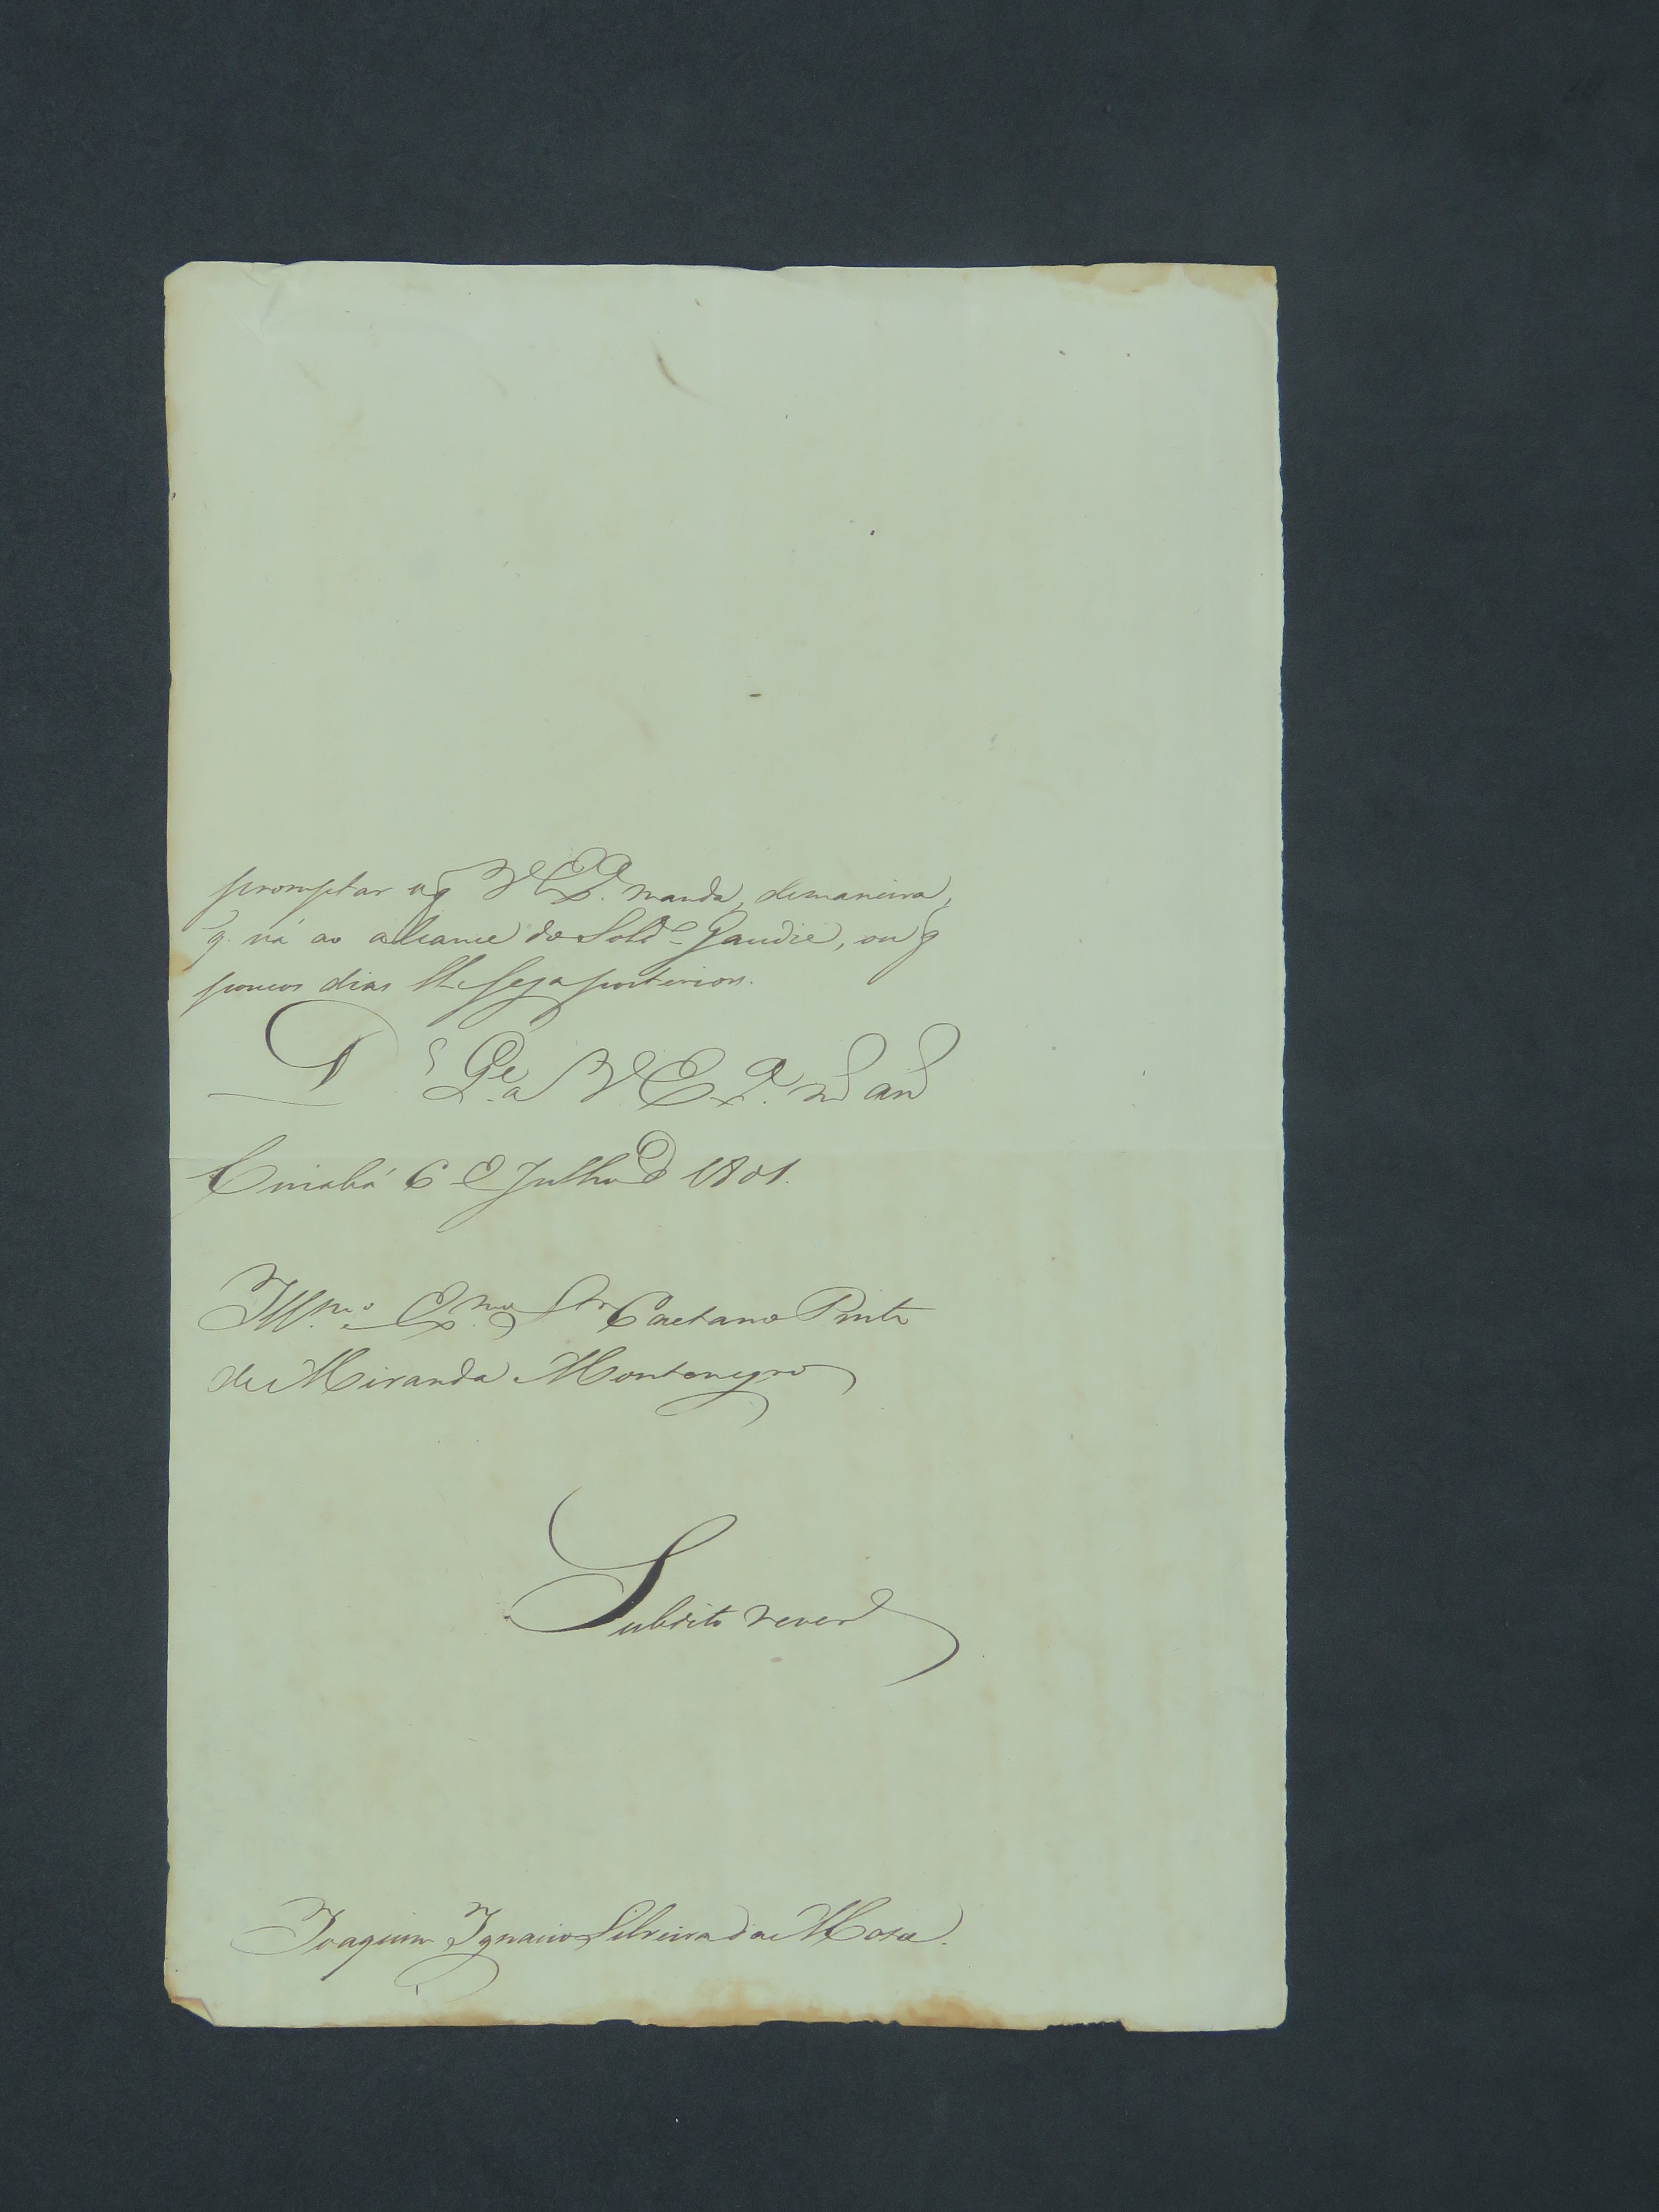 promptar oq̃ V Ex.ª manda, demaneira,
q̃. vá ao alcance do Sold.º Gaudie, ou q̃
poucos dias lhe seja posterior.
D.s G.e a V. Ex.ª m.s an.s
Cuiabá 6 de Julho de 1801.
Ill.mo e Ex.mo Snr Caetano Pinto
de Miranda Montenegro
Subdito rever.e
Joaquim Ignacio Silveira da Mota.